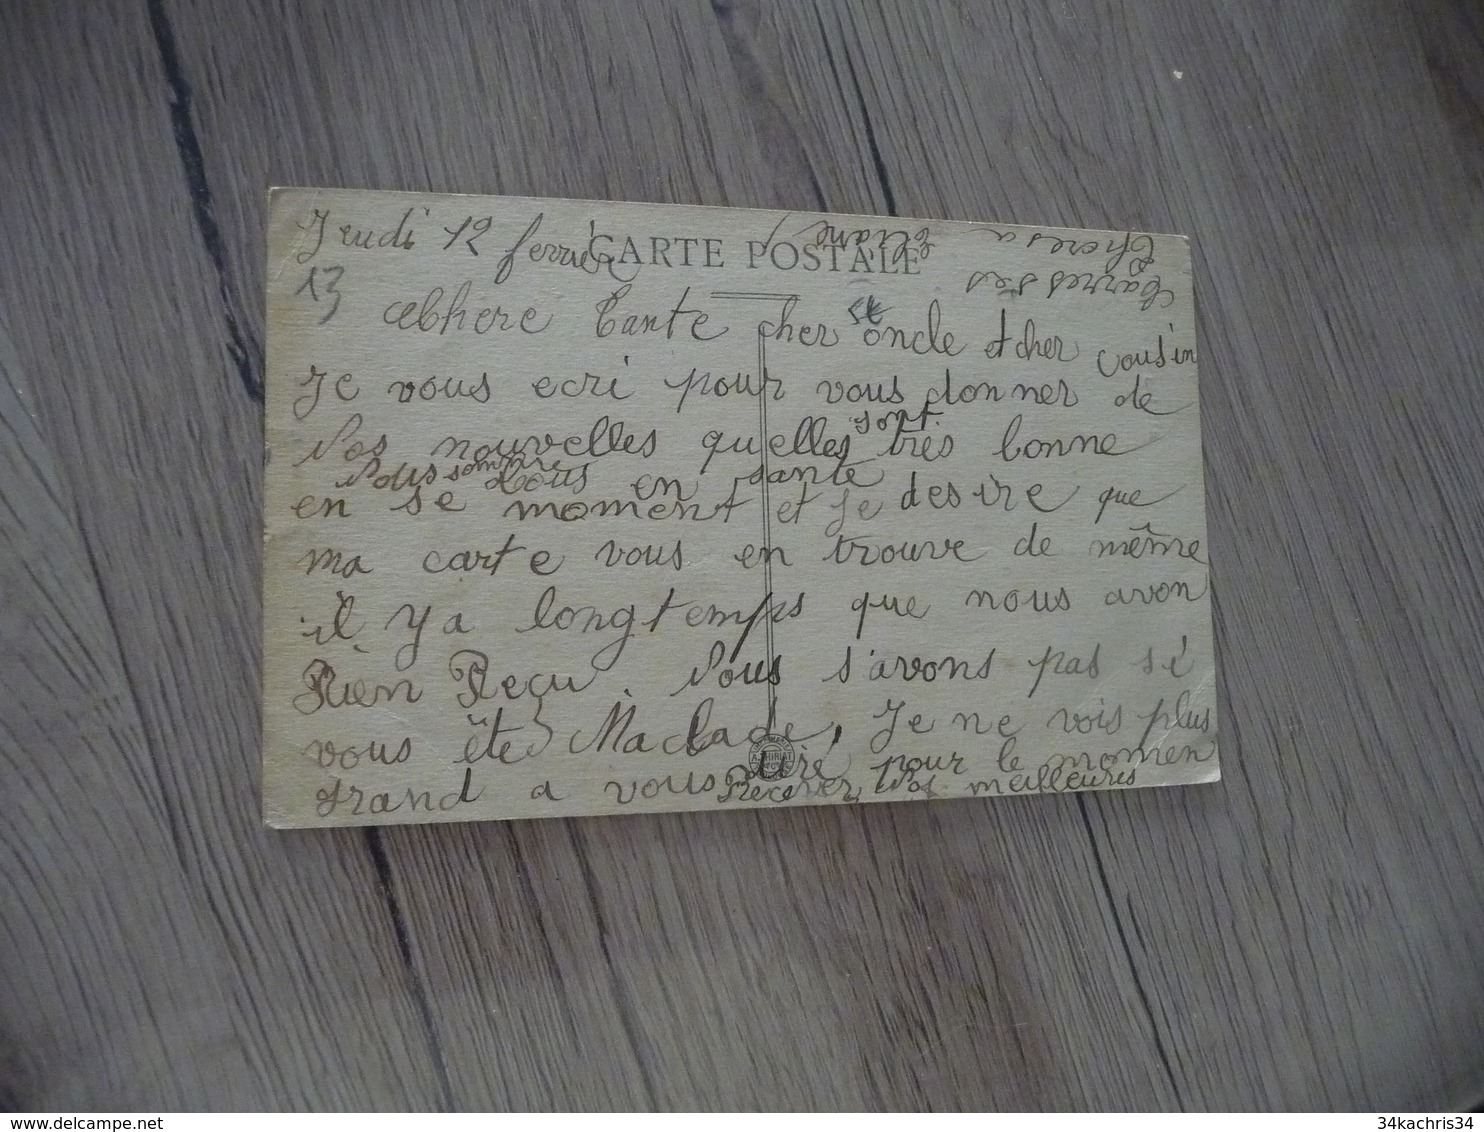 Jeudi 12 fevrier
CARTE POSTALE
13
Chere Tante cher et oncle et cher cousin
Je vous ecri pour vous donner de
Nos nouvelles quelles sont très bonne
Nous somme tous en santé
en se moment et je desire que
ma carte vous en trouve de même
il y a longtemps que nous avon
Rien Reçu. Nous s'avons pas si
vous ête Malade, Je ne vois plus
grand a vous dire pour le momen
Recever Nos meilleures
Carresses
Theresa
Eliane
34kachris34